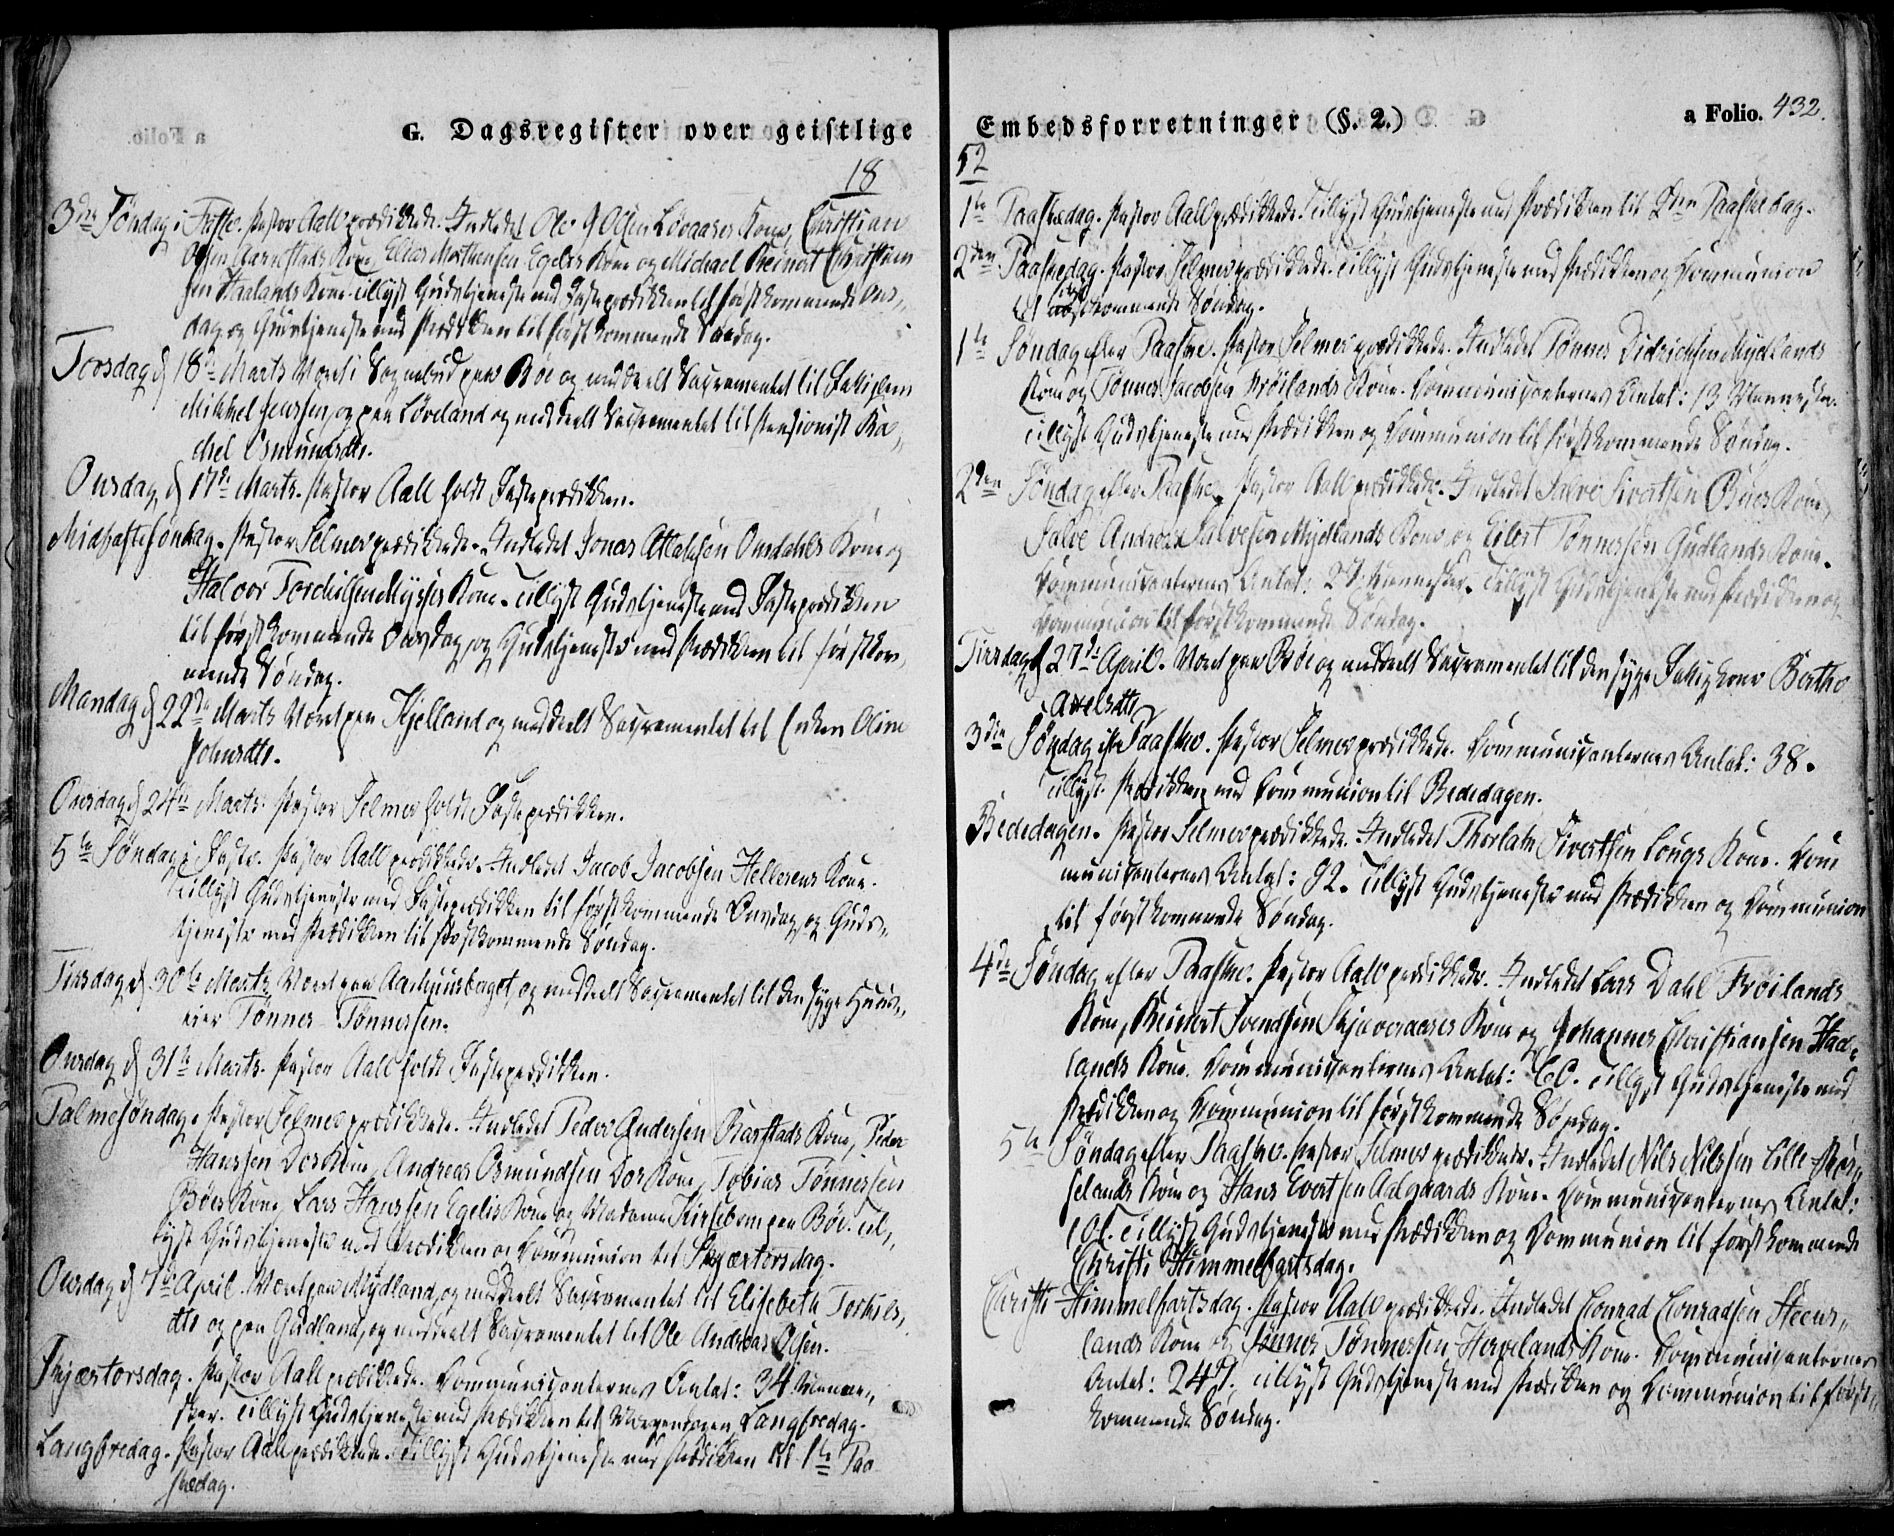 G. Dagsregister over geistlige
18
3die Søndag i Faste. Pastor Aall prædikede. Indledet Ole G Olsen Løvaases Kone, Christian
Olsen Aarrestads Kone, Elias Mortensen Egelis Kone og Michael Reinert Christian
sen Haalands Kone. Tillyst Gudstjeneste med Fasteprædiken til førstkommende Ons-
dag og Gudstjeneste med Prædiken til førstkommende Søndag.
Torsdag d 18de Marts. Været i Sognebud paa Bøe og meddeelt Sacramentet til Fattiglem
Mikkel Jenssen, og paa Løveland og meddeelt Sacramentet til Pensionist Ra-
chel Osmundsdtr.
Onsdag d 17de Marts. Pastor Aall holdt Fasteprædiken.
Midfastesøndag. Pastor Selmer prædikede. Indledet Jonas Atlaksen Omdahls Kone og
Halvor Torchilsen Mysses Kone. Tillyst Gudstjeneste med Fasteprædiken
til førstkommende Onsdag, og Gudstjeneste med Prædiken til førstkom-
mende Søndag.
Mandag d 22de Marts. Været paa Kjelland og meddeelt Sacramentet til Enken Oline
Johnsdtr.
Onsdag d 24de Marts. Pastor Selmer holdt Fasteprædiken.
5te Søndag i Faste. Pastor Aall prædikede. Indledet Jacob Jacobsen Hellerens Kone.
Tillyst Gudstjeneste med Fasteprædiken til førstkommende Onsdag, og Guds-
tjeneste med Prædiken til førstkommende Søndag.
Tirsdag d 30te Marts. Været paa Aarhuusbaget, og meddeelt Sacramentet til den syge Huus-
eier Tønnes Tønnessen.
Onsdag d 31te Marts. Pastor Aall holdt Fasteprædiken.
Palmesøndag. Pastor Selmer prædikede. Indledet Peder Andersen Barstads Kone, Peder
Hanssen Dos Kone, Andreas Osmundsen Dos Kone, Tobias Tønnessen
Bøes Kone, Lars Hanssen Egelis Kone og Madame Kirsebom paa Bøe. Til-
lyst Gudstjeneste med Prædiken og Communion til Skjærtorsdag.
Onsdag d 7de April. Været paa Mydland, og meddeelt Sacramentet til Elisebeth Torkils-
dtr og paa Gudland, og meddeelt Sacramentet til Ole Andreas Olsen.
Skjærtorsdag. Pastor Aall prædikede. Communicanternes Antal: 34 Menne-
sker. Tillyst Gudstjeneste med Prædiken til Morgendagen, Langfredag.
Langfredag. Pastor Aall prædikede. Tillyst Gudstjeneste med Prædiken til 1te Paa-
skedag.
Embedsforretninger (§. 2.)
a Folio. 432.
52
1te Paaskedag. Pastor Aall prædikede. Tillyst Gudstjeneste med Prædiken til 2den Paaskedag.
2den Paaskedag. Pastor Selmer prædikede. Tillyst Gudstjeneste med Prædiken og Communion
til førstkommende Søndag.
1te Søndag efter Paaske. Pastor Selmer prædikede. Indledet Tønnes Didrichsen Mydlands
Kone og Tønnes Jacobsen Frøilands Kone. Communicanternes Antal: 13 Mennesker.
Tillyst Gudstjeneste med Prædiken og Communion til førstkommende Søndag.
2den Søndag efter Paaske. Pastor Aall prædikede. Indledet Salve Sivertsen Bøes Kone,
Salve Andreas Salvesen Mydlands Kone, og Eilert Tønnessen Gudlands Kone.
Communicanternes Antal: 27 Mennesker. Tillyst Gudstjeneste med Prædiken og
Communion til førstkommende Søndag.
Tirsdag d 27de April. Været paa Bøe og meddeelt Sacramentet til den syge Fattigkone Berthe
Axelsdtr.
3die Søndag efter Paaske. Pastor Selmer prædikede. Communicanternes Antal: 38.
Tillyst Prædiken med Communion til Bededagen.
Bededagen. Pastor Selmer prædikede. Indledet Thorlak Sivertsen Lougs Kone. Com
municanternes Antal: 92. Tillyst Gudstjeneste med Prædiken og Communion
til førstkommende Søndag.
4de Søndag efter Paaske. Pastor Aall prædikede. Indledet Lars Dahl Frøilands
Kone, Reinert Svendsen Skjæveraases Kone og Johannes Christiansen Haa-
lands Kone. Communicanternes Antal: 60. Tillyst Gudstjeneste med
Prædiken og Communion til førstkommende Søndag.
5te Søndag efter Paaske. Pastor Selmer prædikede. Indledet Nils Nilssen Lille-Mos-
selands Kone og Hans Evertsen Aalgaards Kone. Communicanternes Antal:
101. Tillyst Gudstjeneste med Prædiken og Communion til førstkommende
Christi Himmelfartsdag.
Christi Himmelfartsdag. Pastor Aall prædikede. Indledet Conrad Conradsen Steens-
lands Kone og Tønnes Tønnessen Hervelands Kone. Communicanternes
Antal: 247. Tillyst Gudstjeneste med Prædiken og Communion til først-
kommende Søndag.